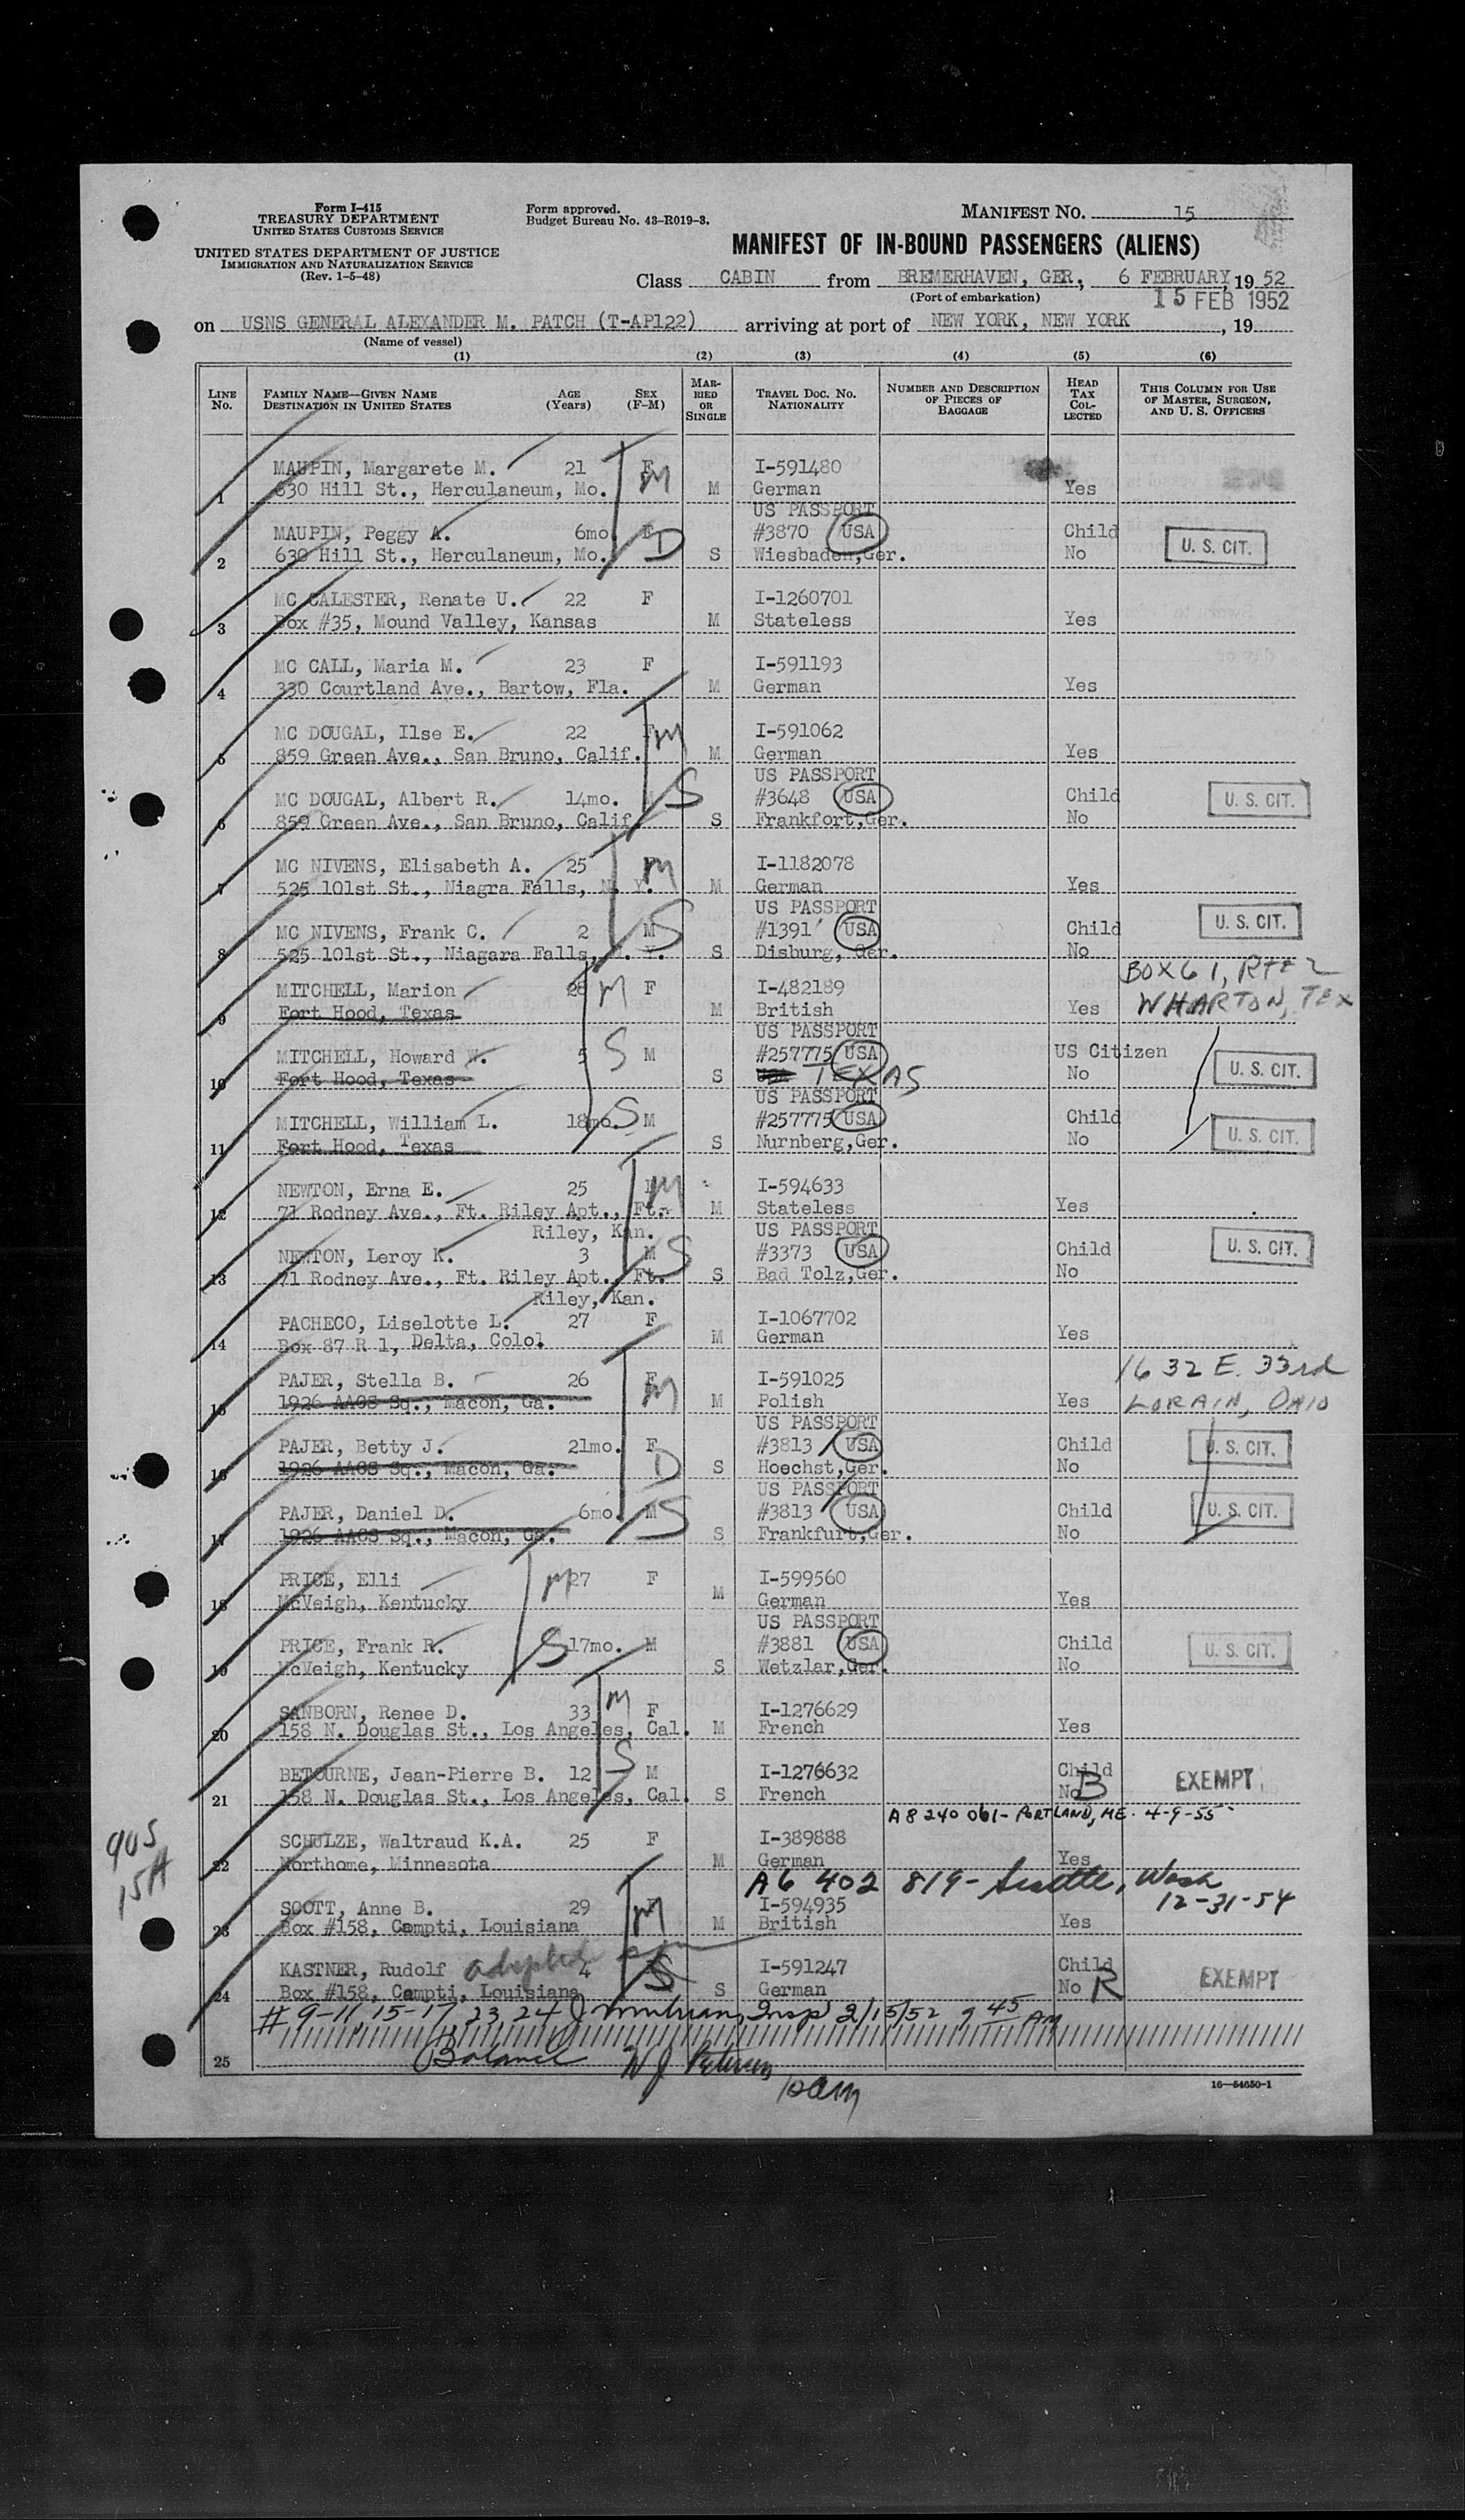 Form I-415
TREASURY DEPARTMENT
UNITED STATES CUSTOMS SERVICE
UNITED STATES DEPARTMENT OF JUSTICE
IMMIGRATION AND NATURALIZATION SERVICE
(Rev. 1-5-48)
Form approved.
Budget Bureau No. 43-R019-3.
MANIFEST NO. 15
MANIFEST OF IN-BOUND PASSENGERS (ALIENS)
Class CABIN from BREMERHAVEN, GER., 6 FEBRUARY, 19 52
(Port of embarkation)
15 FEB 1952
on USNS GENERAL ALEXANDER M. PATCH (T-AP122) arriving at port of NEW YORK, NEW YORK, 19
(Name of vessel)
(1) (2) (3) (4) (5) (6)
LINE NO. FAMILY NAME—GIVEN NAME DESTINATION IN UNITED STATES AGE (Years) SEX (F-M) MARRIED OR SINGLE TRAVEL DOC. NO. NATIONALITY NUMBER AND DESCRIPTION OF PIECES OF BAGGAGE HEAD TAX COLLECTED THIS COLUMN FOR USE OF MASTER, SURGEON, AND U. S. OFFICERS
MAUPIN, Margarete M. 21 F M I-591480
1 630 Hill St., Herculaneum, Mo. M German Yes
US PASSPORT
MAUPIN, Peggy A. 6mo. F D #3870 USA Child U. S. CIT.
2 630 Hill St., Herculaneum, Mo. S Wiesbaden,Ger. No
MC CALESTER, Renate U. 22 F I-1260701
3 Box #35, Mound Valley, Kansas M Stateless Yes
MC CALL, Maria M. 23 F I-591193
4 330 Courtland Ave., Bartow, Fla. M German Yes
MC DOUGAL, Ilse E. 22 F M I-591062
5 859 Green Ave., San Bruno, Calif. M German Yes
US PASSPORT
MC DOUGAL, Albert R. 14mo. S #3648 USA Child U. S. CIT.
6 859 Green Ave., San Bruno, Calif. S Frankfort,Ger. No
MC NIVENS, Elisabeth A. 25 M I-1182078
7 525 101st St., Niagra Falls, N. Y. M German Yes
US PASSPORT
MC NIVENS, Frank C. 2 M S #1391 USA Child U. S. CIT.
8 525 101st St., Niagara Falls, N. Y. S Disburg, Ger. No
BOX 61, RTE 2
MITCHELL, Marion 28 M F I-482189
9 Fort Hood, Texas M British Yes WHARTON, TEX
US PASSPORT
MITCHELL, Howard W. 5 S M #257775 USA US Citizen U. S. CIT.
10 Fort Hood, Texas S TEXAS No
US PASSPORT
MITCHELL, William L. 18mo. S M #257775 USA Child U. S. CIT.
11 Fort Hood, Texas S Nurnberg,Ger. No
NEWTON, Erna E. 25 M I-594633
12 71 Rodney Ave., Ft. Riley Apt., Ft. M Stateless Yes
Riley, Kan. US PASSPORT
NEWTON, Leroy K. 3 M S #3373 USA Child U. S. CIT.
13 71 Rodney Ave., Ft. Riley Apt., Ft. S Bad Tolz,Ger. No
Riley, Kan.
PACHECO, Liselotte L. 27 F I-1067702
14 Box 87 R 1, Delta, Colo. M German Yes
1632 E. 33rd
PAJER, Stella B. 26 F M I-591025
15 1926 AACS Sq., Macon, Ga. M Polish Yes LORAIN, OHIO
US PASSPORT
PAJER, Betty J. 21mo. F D #3813 USA Child U. S. CIT.
16 1926 AACS Sq., Macon, Ga. S Hoechst,Ger. No
US PASSPORT
PAJER, Daniel D. 6mo. M S #3813 USA Child U. S. CIT.
17 1926 AACS Sq., Macon, Ga. S Frankfurt,Ger. No
PRICE, Elli M 27 F I-599560
18 McVeigh, Kentucky M German Yes
US PASSPORT
PRICE, Frank R. S 17mo. M #3881 USA Child U. S. CIT.
19 McVeigh, Kentucky S Wetzlar,Ger. No
SANBORN, Renee D. 33 M F I-1276629
20 158 N. Douglas St., Los Angeles, Cal. M French Yes
BETOURNE, Jean-Pierre B. 12 S M I-1276632 Child EXEMPT
21 158 N. Douglas St., Los Angeles, Cal. S French No B
A8 240 061- PORTLAND, ME. 4-9-55
905
15A
SCHULZE, Waltraud K.A. 25 F I-389888
22 Northome, Minnesota M German Yes
A6 402 819- Seattle, Wash
12-31-54
SCOTT, Anne B. 29 M I-594935
23 Box #158, Campti, Louisiana M British Yes
KASTNER, Rudolf adopted son 4 S I-591247 Child EXEMPT
24 Box #158, Campti, Louisiana S German No R
# 9-11, 15-17, 23, 24 Insp 2/15/52 9 45 AM
25 Balance
16—54650-1